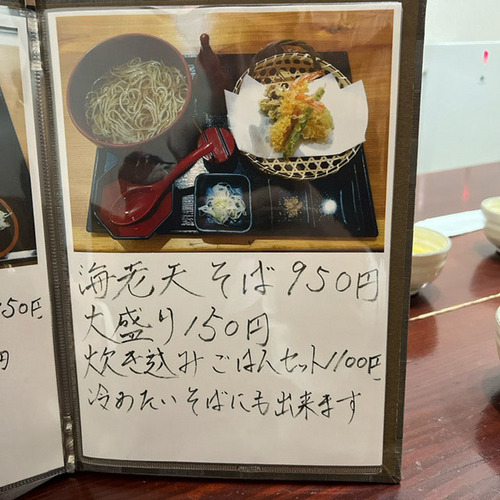 海老天そば950円
大盛り150円
炊き込みごはんセット1100円
冷めたいそばにも出来ます
50円
円